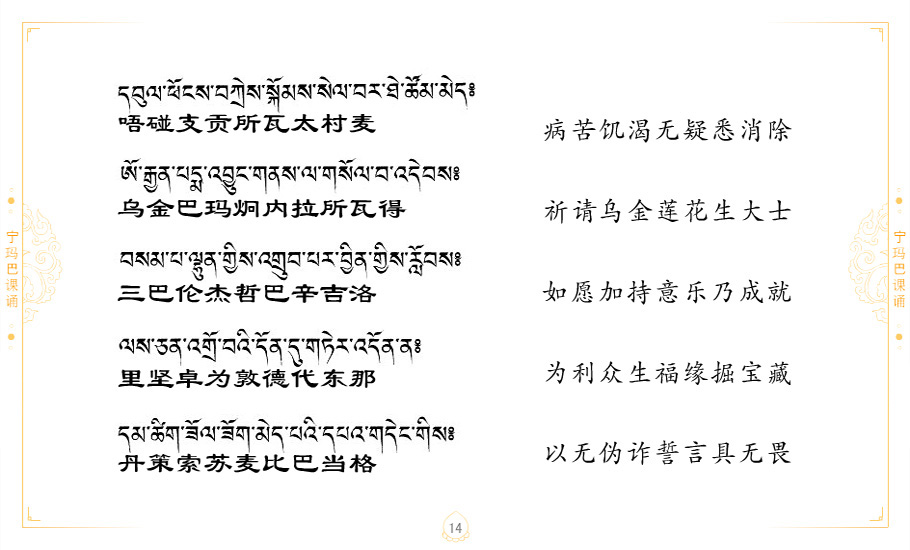 དབུལ་ཕོངས་བཀྲེས་སྐོམས་སེལ་བར་ཐེ་ཚོམ་མེད༔
唔碰支贡所瓦太村麦
病苦饥渴无疑悉消除
ཨོ་རྒྱན་པདྨ་འབྱུང་གནས་ལ་གསོལ་བ་འདེབས༔
乌金巴玛炯内拉所瓦得
祈请乌金莲花生大士
བསམ་པ་ལྷུན་གྱིས་འགྲུབ་པར་བྱིན་གྱིས་རློབས༔
三巴伦杰哲巴辛吉洛
如愿加持意乐乃成就
ལས་ཅན་འགྲོ་བའི་དོན་དུ་གཏེར་འདོན་ན༔
里坚卓为敦德代东那
为利众生福缘掘宝藏
དམ་ཚིག་ཟོལ་ཟོག་མེད་པའི་དཔའ་གདེང་གིས༔
丹策索苏麦比巴当格
以无伪诈誓言具无畏
宁玛巴课诵
宁玛巴课诵
14